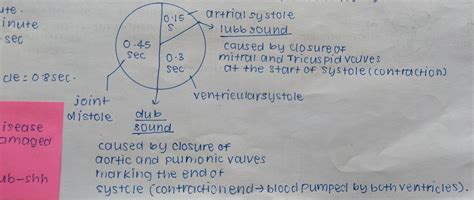 ute.
inute
sec
cle = 0.8sec.
0.15
S
0.45
sec
0.3
sec
artrial systole
lubb sound
caused by closure of
mitral and Tricuspid valves
at the start of systole (contraction)
ventricular systole
joint
distole
dub
sound
caused by closure of
aortic and pulmonic valves
marking the end of
systole (contraction end → blood pumped by both ventricles).
isease
amaged
ub-shh